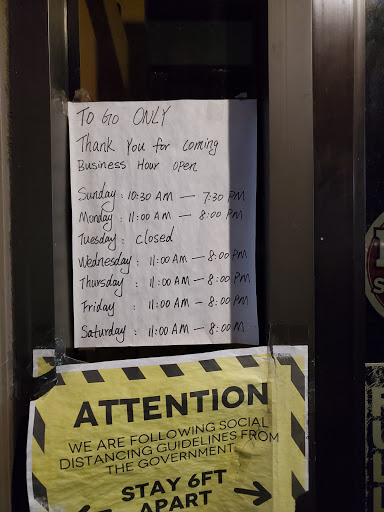 TO GO ONLY
Thank You for coming
Business Hour open
Sunday : 10:30 AM — 7:30 PM
Monday : 11:00 AM — 8:00 PM
Tuesday : closed
Wednesday : 11:00 AM — 8:00 PM
Thursday : 11:00 AM — 8:00 PM
Friday : 11:00 AM — 8:00 PM
Saturday : 11:00 AM — 8:00 M
ATTENTION
WE ARE FOLLOWING SOCIAL
DISTANCING GUIDELINES FROM
THE GOVERNMENT
STAY 6FT
APART